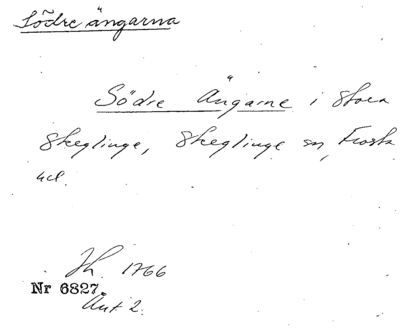 Södre ängarna
Södre Ängarne i Stora
Skeglinge, Skeglinge sn, Frosta
hd.
Jh. 1766
Nr 6827.
Akt 2.